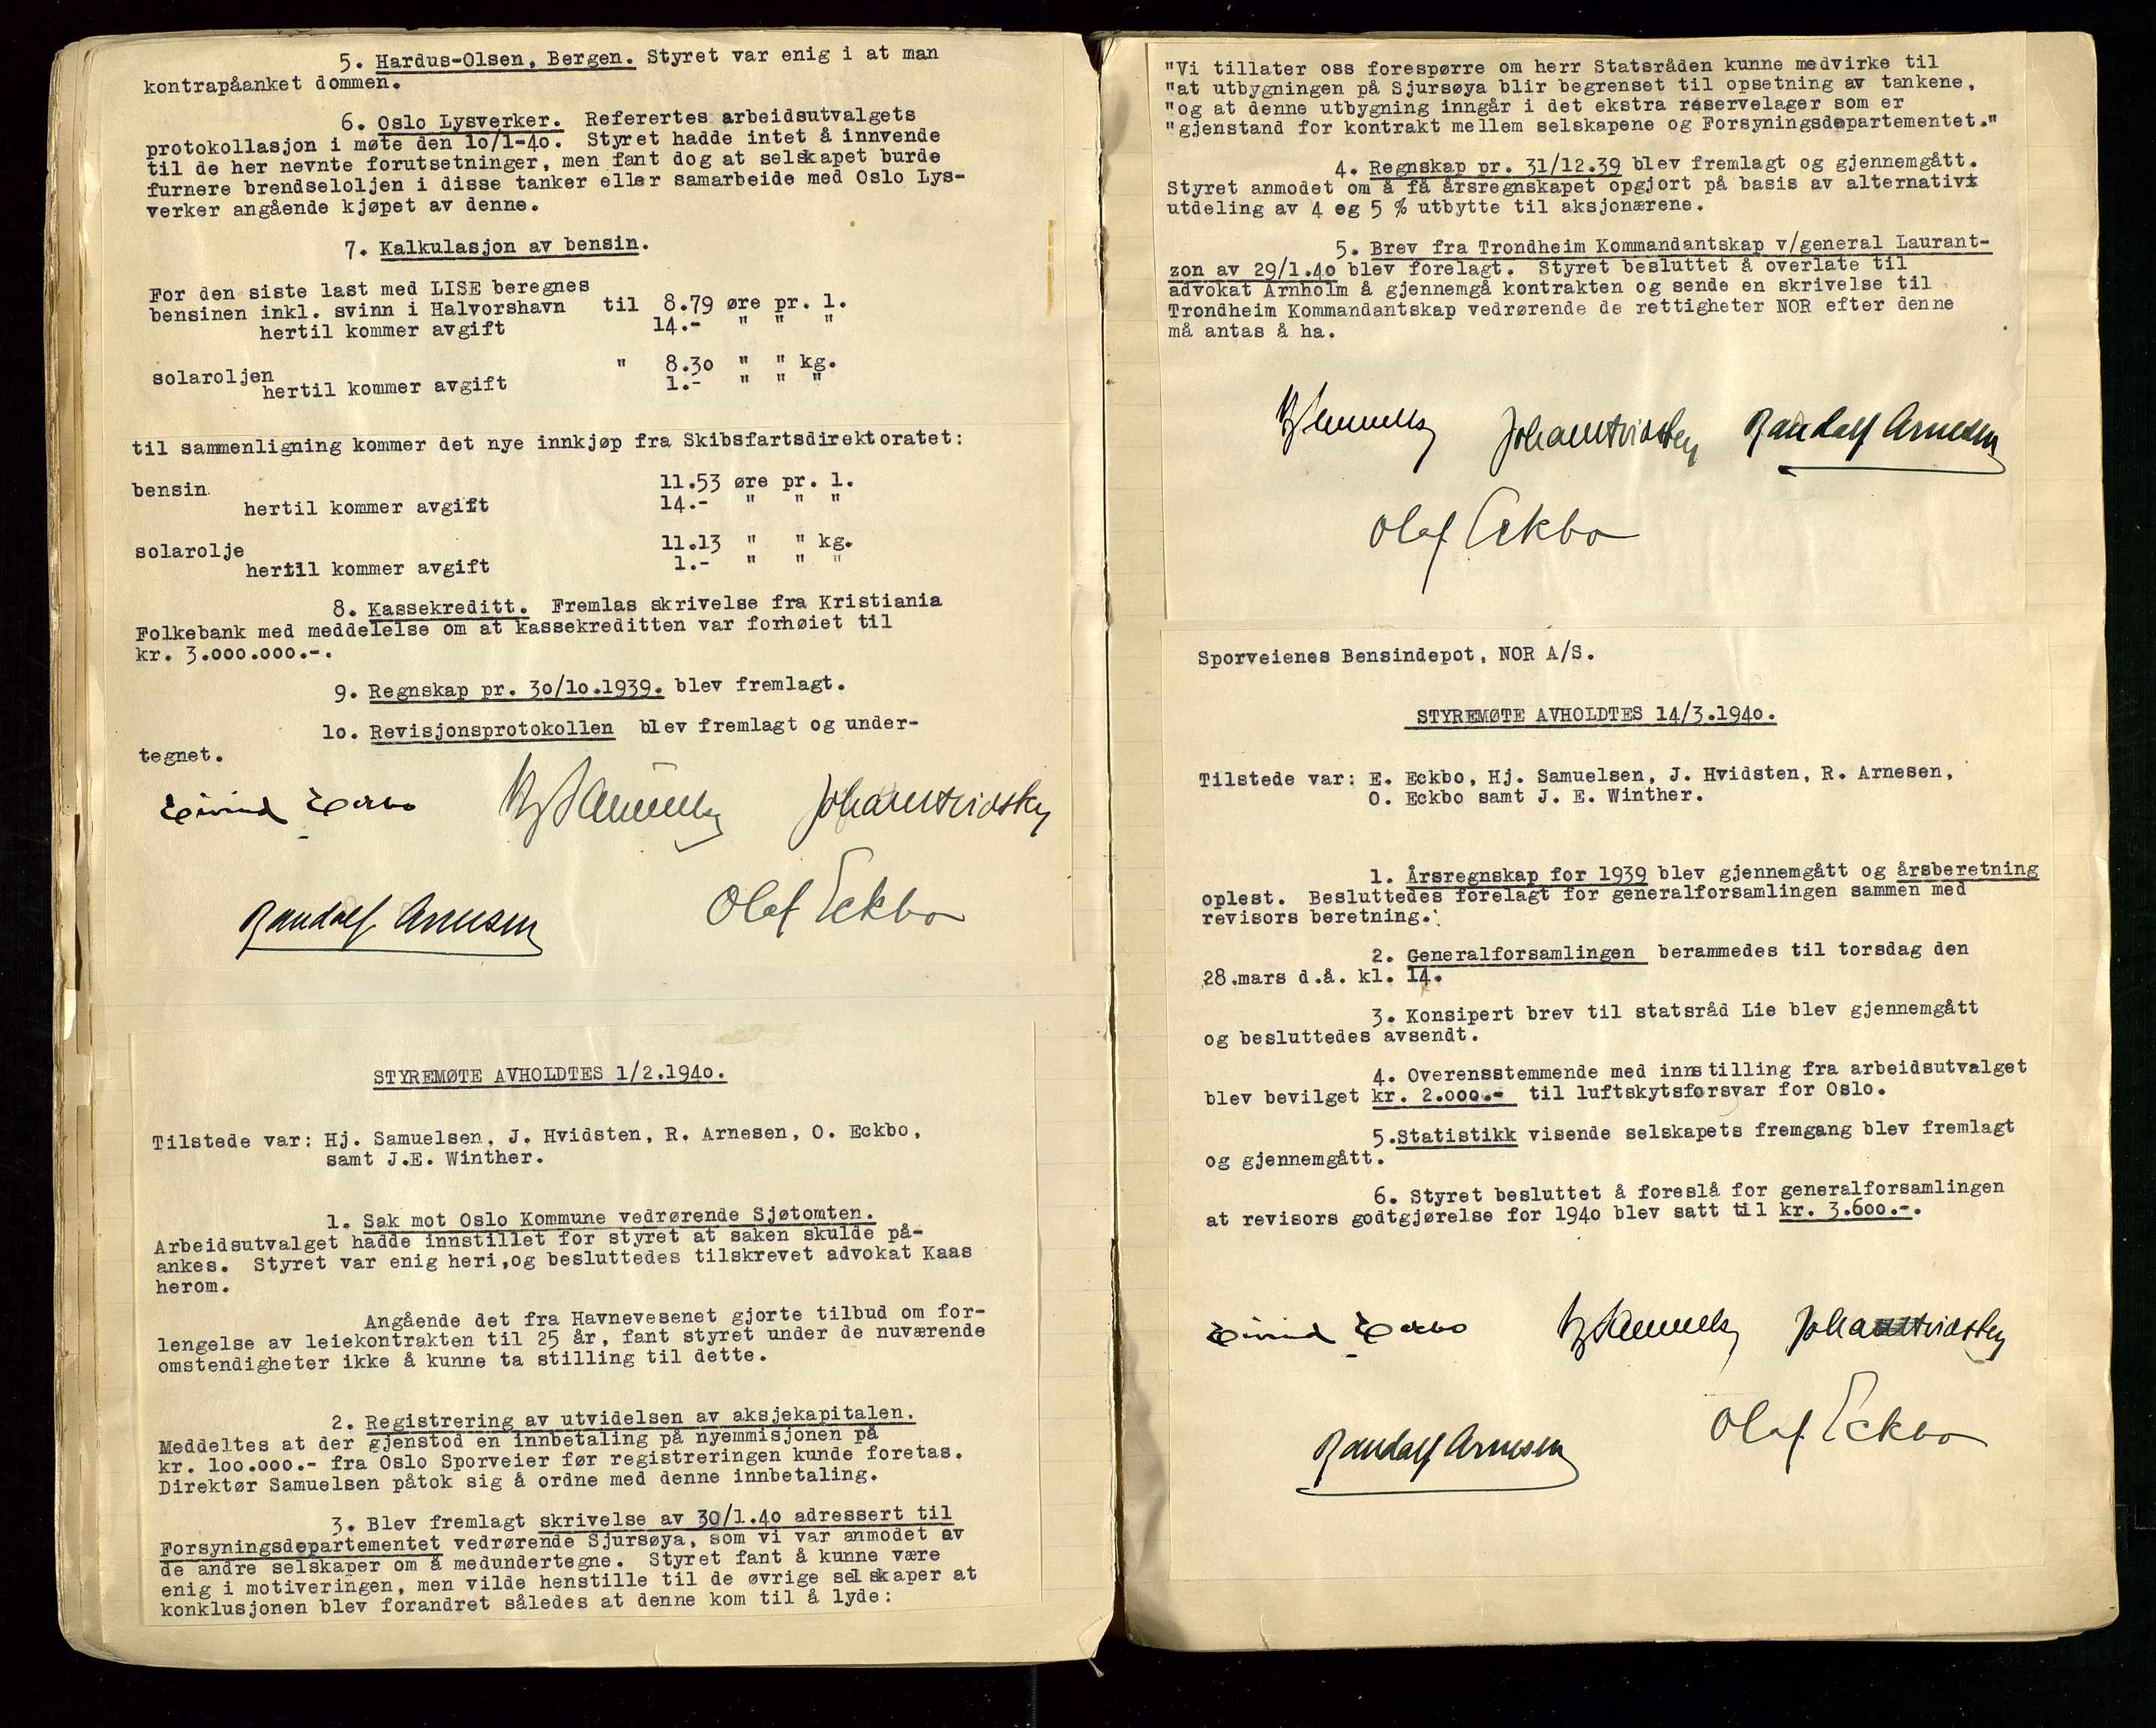 5. Hardus-Olsen, Bergen. Styret var enig i at man
kontrapåanket dommen.
6. Oslo Lysverker. Referertes arbeidsutvalgets
protokollasjon i møte den 10/1-40. Styret hadde intet å innvende
til de her nevnte forutsetninger, men fant dog at selskapet burde
furnere brendseloljen i disse tanker eller samarbeide med Oslo Lys-
verker angående kjøpet av denne.
7. Kalkulasjon av bensin.
For den siste last med LISE beregnes
bensinen inkl. svinn i Halvorshavn til 8.79 øre pr. l.
hertil kommer avgift 14.- " " "
solaroljen " 8.30 " " kg.
hertil kommer avgift 1.- " " "
til sammenligning kommer det nye innkjøp fra Skibsfartsdirektoratet:
bensin 11.53 øre pr. l.
hertil kommer avgift 14.- " " "
solarolje 11.13 " " kg.
hertil kommer avgift 1.- " " "
8. Kassekreditt. Fremlas skrivelse fra Kristiania
Folkebank med meddelelse om at kassekreditten var forhøiet til
kr. 3.000.000.-.
9. Regnskap pr. 30/10.1939. blev fremlagt.
10. Revisjonsprotokollen blev fremlagt og under-
tegnet.
Eivind Eckbo Hj Samuelsen Johan Hvidsten
Randolf Arnesen Olaf Eckbo
STYREMØTE AVHOLDTES 1/2.1940.
Tilstede var: Hj. Samuelsen, J. Hvidsten, R. Arnesen, O. Eckbo,
samt J.E. Winther.
1. Sak mot Oslo Kommune vedrørende Sjøtomten.
Arbeidsutvalget hadde innstillet for styret at saken skulde på-
ankes. Styret var enig heri,og besluttedes tilskrevet advokat Kaas
herom.
Angående det fra Havnevesenet gjorte tilbud om for-
lengelse av leiekontrakten til 25 år, fant styret under de nuværende
omstendigheter ikke å kunne ta stilling til dette.
2. Registrering av utvidelsen av aksjekapitalen.
Meddeltes at der gjenstod en innbetaling på nyemmisjonen på
kr. 100.000.- fra Oslo Sporveier før registreringen kunde foretas.
Direktør Samuelsen påtok sig å ordne med denne innbetaling.
3. Blev fremlagt skrivelse av 30/1.40 adressert til
Forsyningsdepartementet vedrørende Sjursøya, som vi var anmodet av
de andre selskaper om å medundertegne. Styret fant å kunne være
enig i motiveringen, men vilde henstille til de øvrige selskaper at
konklusjonen blev forandret således at denne kom til å lyde:
"Vi tillater oss forespørre om herr Statsråden kunne medvirke til
"at utbygningen på Sjursøya blir begrenset til opsetning av tankene,
"og at denne utbygning inngår i det ekstra reservelager som er
"gjenstand for kontrakt mellem selskapene og Forsyningsdepartementet."
4. Regnskap pr. 31/12.39 blev fremlagt og gjennemgått.
Styret anmodet om å få årsregnskapet opgjort på basis av alternativ
utdeling av 4 og 5 % utbytte til aksjonærene.
5. Brev fra Trondheim Kommandantskap v/general Laurant-
zon av 29/1.40 blev forelagt. Styret besluttet å overlate til
advokat Arnholm å gjennemgå kontrakten og sende en skrivelse til
Trondheim Kommandantskap vedrørende de rettigheter NOR efter denne
må antas å ha.
Hj Samuelsen Johan Hvidsten Randolf Arnesen
Olaf Eckbo
Sporveienes Bensindepot, NOR A/S.
STYREMØTE AVHOLDTES 14/3.1940.
Tilstede var: E. Eckbo, Hj. Samuelsen, J. Hvidsten, R. Arnesen,
O. Eckbo samt J. E. Winther.
1. Årsregnskap for 1939 blev gjennemgått og årsberetning
oplest. Besluttedes forelagt for generalforsamlingen sammen med
revisors beretning.
2. Generalforsamlingen berammedes til torsdag den
28.mars d.å. kl. 14.
3. Konsipert brev til statsråd Lie blev gjennemgått
og besluttedes avsendt.
4. Overensstemmende med innstilling fra arbeidsutvalget
blev bevilget kr. 2.000.- til luftskytsforsvar for Oslo.
5.Statistikk visende selskapets fremgang blev fremlagt
og gjennemgått.
6. Styret besluttet å foreslå for generalforsamlingen
at revisors godtgjørelse for 1940 blev satt til kr. 3.600.-.
Eivind Eckbo Hj Samuelsen Johan Hvidsten
Randolf Arnesen Olaf Eckbo